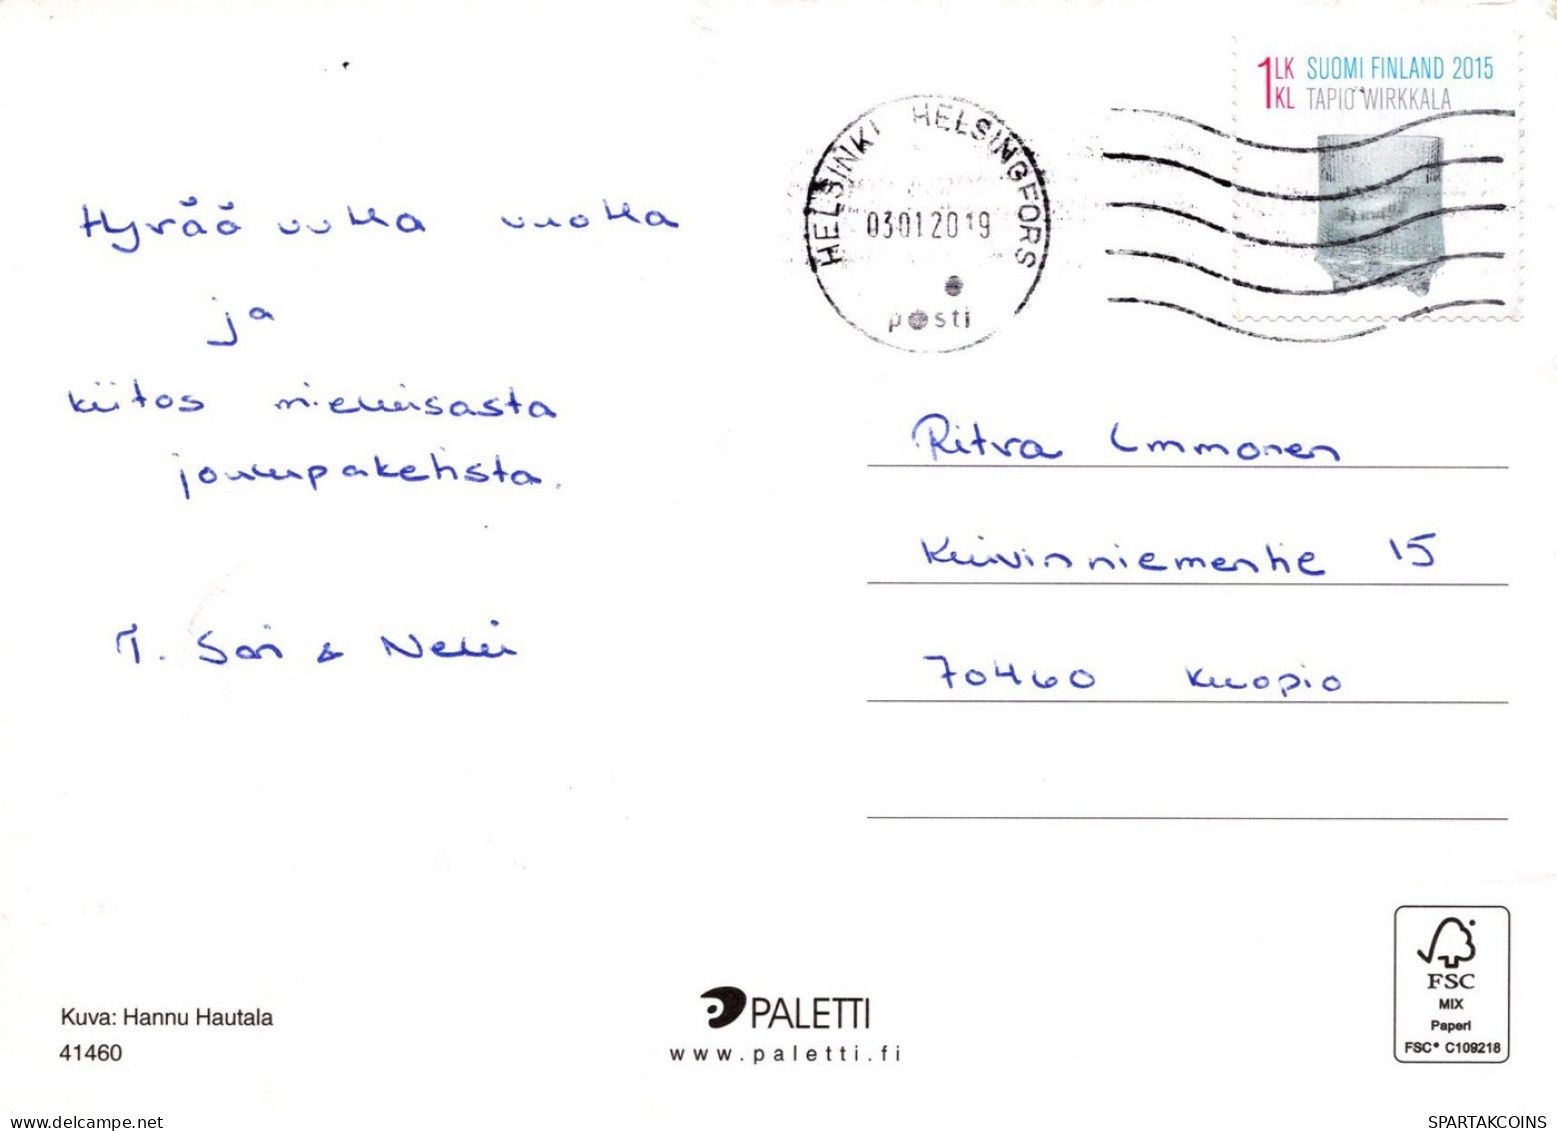 1 LK KL SUOMI FINLAND 2015
TAPIO WIRKKALA
HELSINKI HELSINGFORS
03012019
posti
Hyvää uutta vuotta
ja
kiitos mieluisasta
joulupaketista.
T. Sari & Nelli
Ritva Immonen
Kuivinniementie 15
70460 Kuopio
Kuva: Hannu Hautala
41460
PALETTI
www.paletti.fi
FSC
MIX
Paperi
FSC® C109218
SPARTAKCOINS